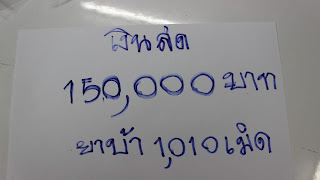 เงินสด
150,000 บาท
ยาบ้า 1,010 เม็ด